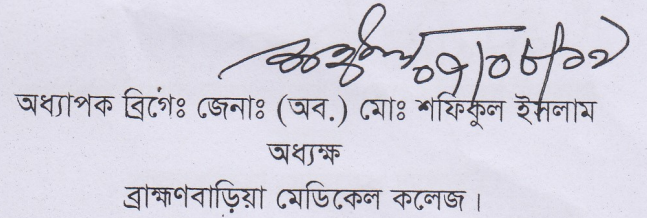 অধ্যাপক ব্রিগেঃ জেনাঃ (অব.) মোঃ শফিকুল ইসলাম
অধ্যক্ষ
ব্রাহ্মণবাড়িয়া মেডিকেল কলেজ।